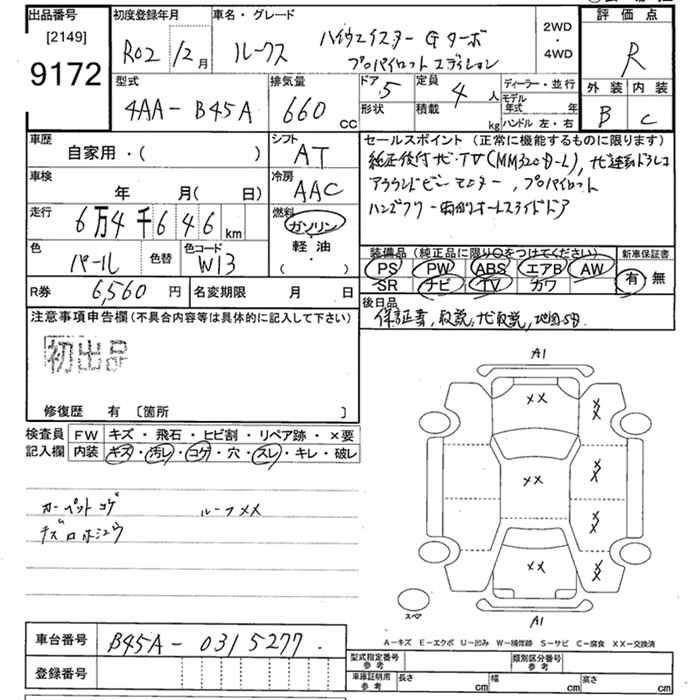 出品番号
[2149]
9172
初度登録年月
R02 12月
車名・グレード
ルークス ハイウェイスター Gターボ
プロパイロットエディション
2WD
・
4WD
評価点
R
外装 内装
B C
型式
4AA-B45A
排気量
660 CC
ドア 5
形状
定員 4 人
積載 kg
ディーラー・並行
モデル年式 年
ハンドル 左・右
車歴
自家用・( )
シフト
AT
車検
年 月( 日)
冷房
AAC
走行
6万4千646km
燃料
ガソリン
・
軽油
・
( )
色
パール
色替
色コード
W13
R券 6,560 円
名変期限 月 日
セールスポイント(正常に機能するものに限ります)
純正後付ナビ・TV(MM320D-L), ナビ連動ドラレコ
アラウンドビューモニター, プロパイロット
ハンズフリー両側オートスライドドア
装備品(純正品に限り○をつけてください)
PS PW ABS エアB AW
SR ナビ TV カワ
新車保証書
有・無
後日品
保証書, 取説, ナビ取説, 地図SD.
注意事項申告欄(不具合内容等は具体的に記入して下さい)
初出品
修復歴 有 〔箇所 〕
検査員記入欄
FW キズ・飛石・ヒビ割・リペア跡・×要
内装 キズ・汚レ・コゲ・穴・スレ・キレ・破レ
カーペットコゲ ルーフXX
チズロホシュウ
A1
XX
XX
XX
XX
XX
XX
XX
A1
スペア
A-キズ E-エクボ U-凹み W-補修跡 S-サビ C-腐食 XX-交換済
車台番号 B45A-0315277.
登録番号
型式指定番号
参考
類別区分番号
参考
車庫証明用
参考
長さ cm 幅 cm 高さ cm